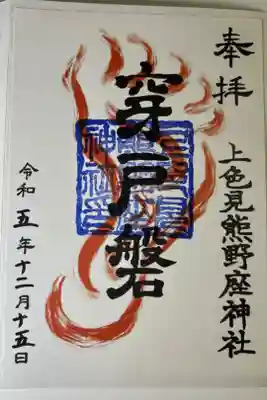 奉拝
上色見熊野座神社
穿戸磐
神社印
令和五年十二月十五日